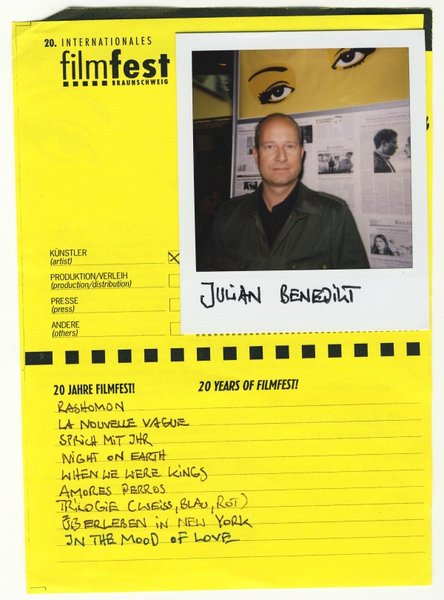 20. INTERNATIONALES
filmfest
BRAUNSCHWEIG
KÜNSTLER
(artist)
PRODUKTION/VERLEIH
(production/distribution)
PRESSE
(press)
ANDERE
(others)
JULIAN BENEDIKT
20 JAHRE FILMFEST!
20 YEARS OF FILMFEST!
RASHOMON
LA NOUVELLE VAGUE
SPRICH MIT IHR
NIGHT ON EARTH
WHEN WE WERE KINGS
AMORES PERROS
TRILOGIE (WEISS, BLAU, ROT)
ÜBERLEBEN IN NEW YORK
IN THE MOOD OF LOVE